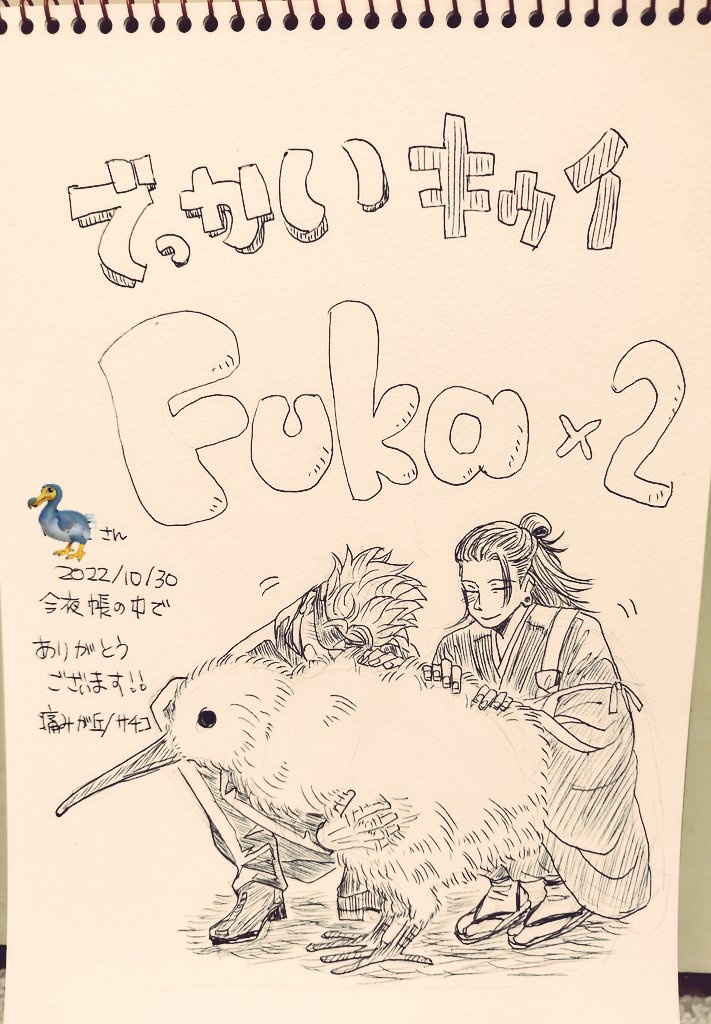 でっかいキウイ
Fuka×2
さん
2022/10/30
今夜帳の中で
ありがとう
ございます!!
痛みが丘/サチコ